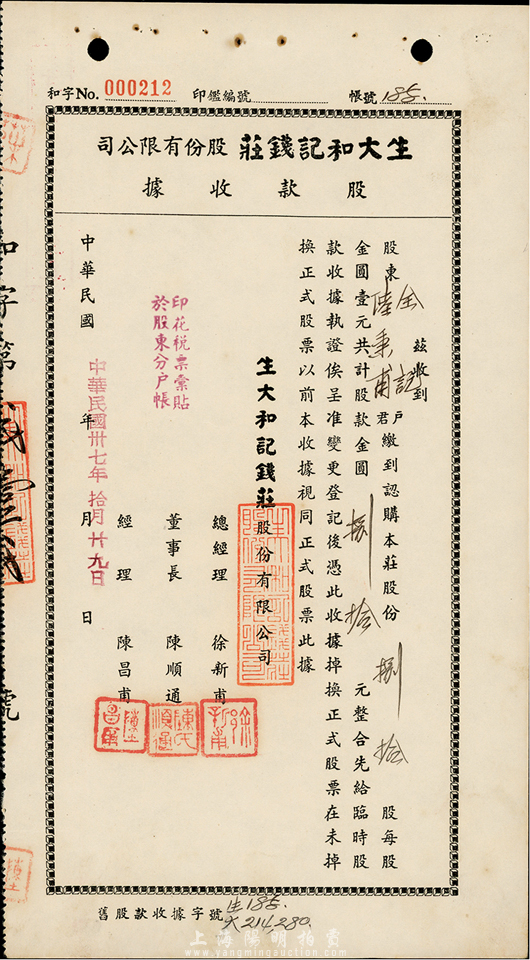 和字No. 000212 印鑑編號 帳號 185.
生大和記錢莊股份有限公司
股款收據
茲收到
股東 陸秉甫 君戶 繳到認購本莊股份 捌拾 股每股
金圓壹元共計股款金圓 捌拾 元整合先給臨時股
款收據執證俟呈准變更登記後憑此收據掉換正式股票在未掉
換正式股票以前本收據視同正式股票此據
生大和記錢莊股份有限公司
總經理 徐新甫
董事長 陳順通
經理 陳昌甫
印花稅票彙貼
於股東分戶帳
中華民國 年 月 日
中華民國卅七年拾月廿九日
和字第 號
舊股款收據字號 生185.
大214,280.
上海陽明拍賣
www.yangmingauction.com